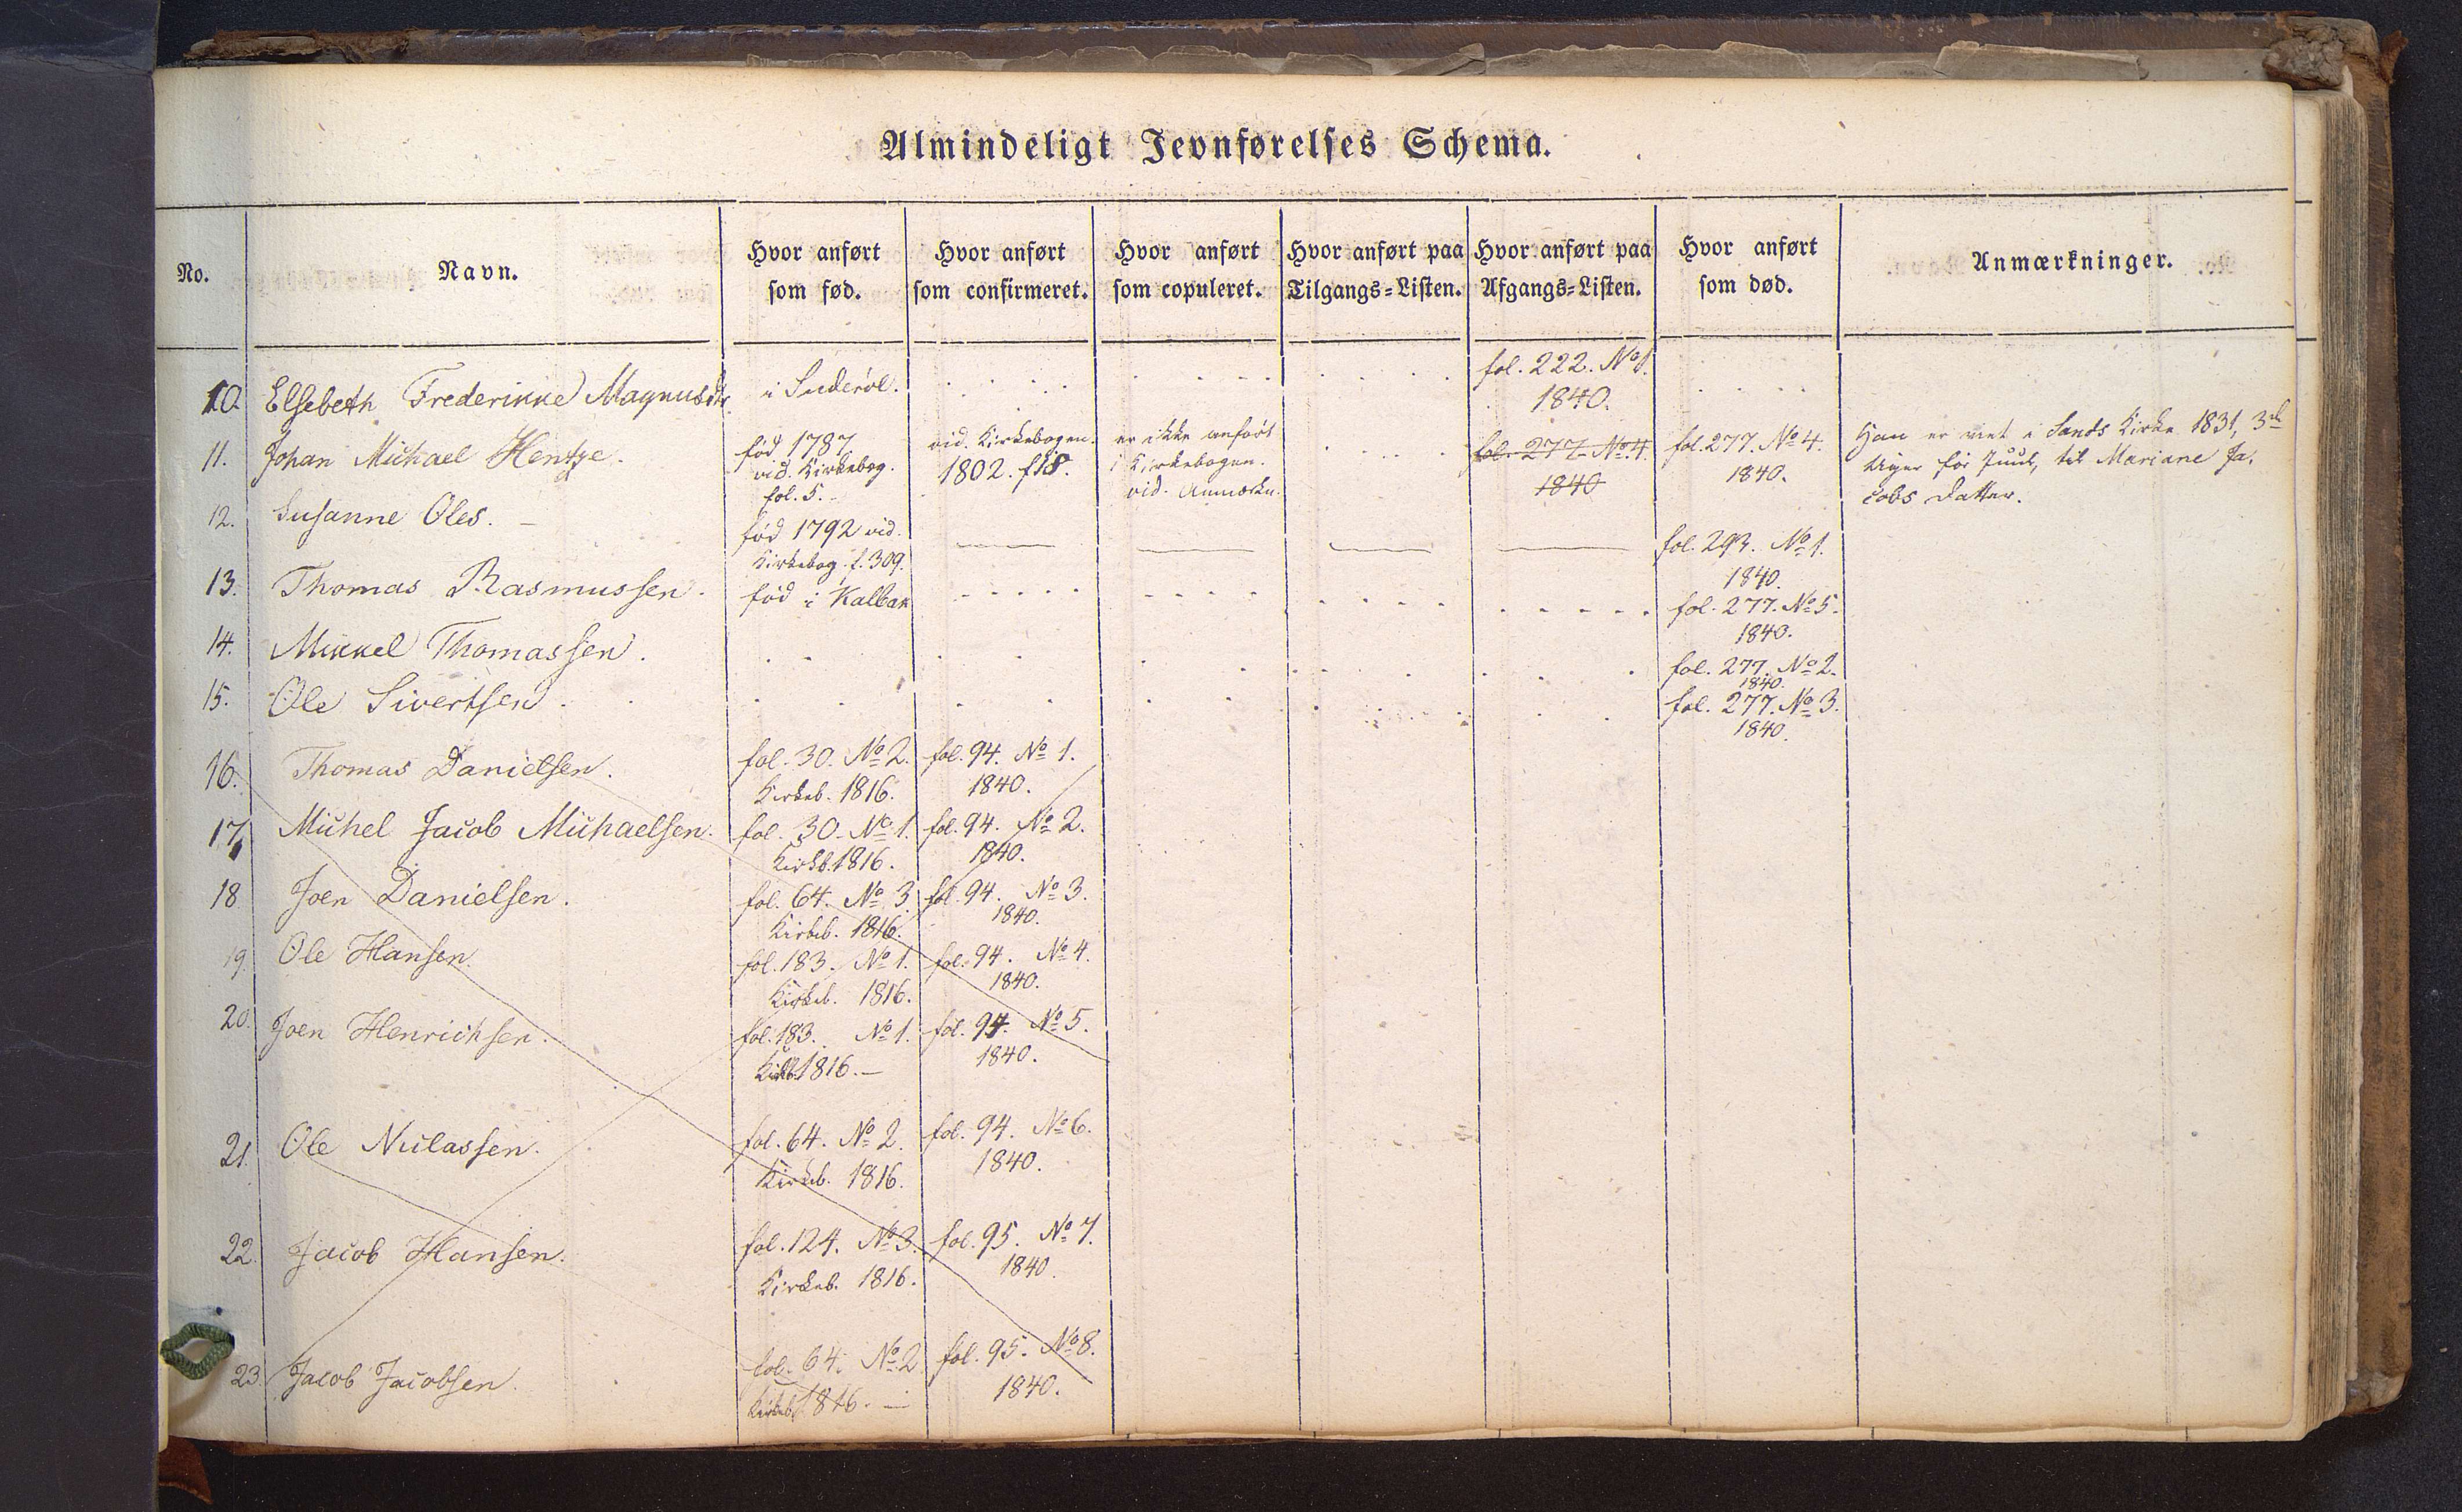 Almindeligt Jevnførelses Schema.
No.
Navn.
Hvor anført som fød.
Hvor anført som confirmeret.
Hvor anført som copuleret.
Hvor anført paa Tilgangs-Listen.
Hvor anført paa Afgangs-Listen.
Hvor anført som død.
Anmærkninger.
10. Elsebeth Frederikke Magnusdtr. i Suderöe. fol. 222. No 1.
1840.
11. Johan Michael Hentze. fød 1787 vid. Kirkebogen. er ikke anført fol. 277. No 4. fol. 277. No 4. Han er viet i Sands Kirke 1831, 3de
vid. Kirkebog. 1802. f 18. i Kirkebogen. 1840 1840. Uger før Juul, til Mariane Ja-
fol. 5. vid. Anmærkn. cobs Datter.
12. Susanne Oles. – fød 1792 vid. fol. 293. No 1.
Kirkebog. f. 309. 1840.
13. Thomas Rasmussen. fød i Kalbak fol. 277. No 5.
1840.
14. Mikkel Thomassen. fol. 277. No 2.
1840.
15. Ole Sivertsen. fol. 277. No 3.
1840.
16. Thomas Danielsen. fol. 30. No 2. fol. 94. No 1.
Kirkeb. 1816. 1840.
17. Michel Jacob Michaelsen. fol. 30. No 1. fol. 94. No 2.
Kirkb. 1816. 1840.
18 Joen Danielsen. fol. 64. No 3. fol. 94. No 3.
Kirkeb. 1816. 1840.
19. Ole Hansen. fol. 183. No 1. fol. 94. No 4.
Kirkeb. 1816. 1840.
20. Joen Henrichsen. fol. 183. No 1. fol. 94. No 5.
Kirkb. 1816. – 1840.
21. Ole Niclassen. fol. 64. No 2. fol. 94. No 6.
Kirkeb. 1816. 1840.
22. Jacob Hansen. fol. 124. No 3. fol. 95. No 7.
Kirkeb. 1816. 1840.
23. Jacob Jacobsen. fol. 64. No 2 fol. 95. No 8.
Kirkeb. 1816. – 1840.